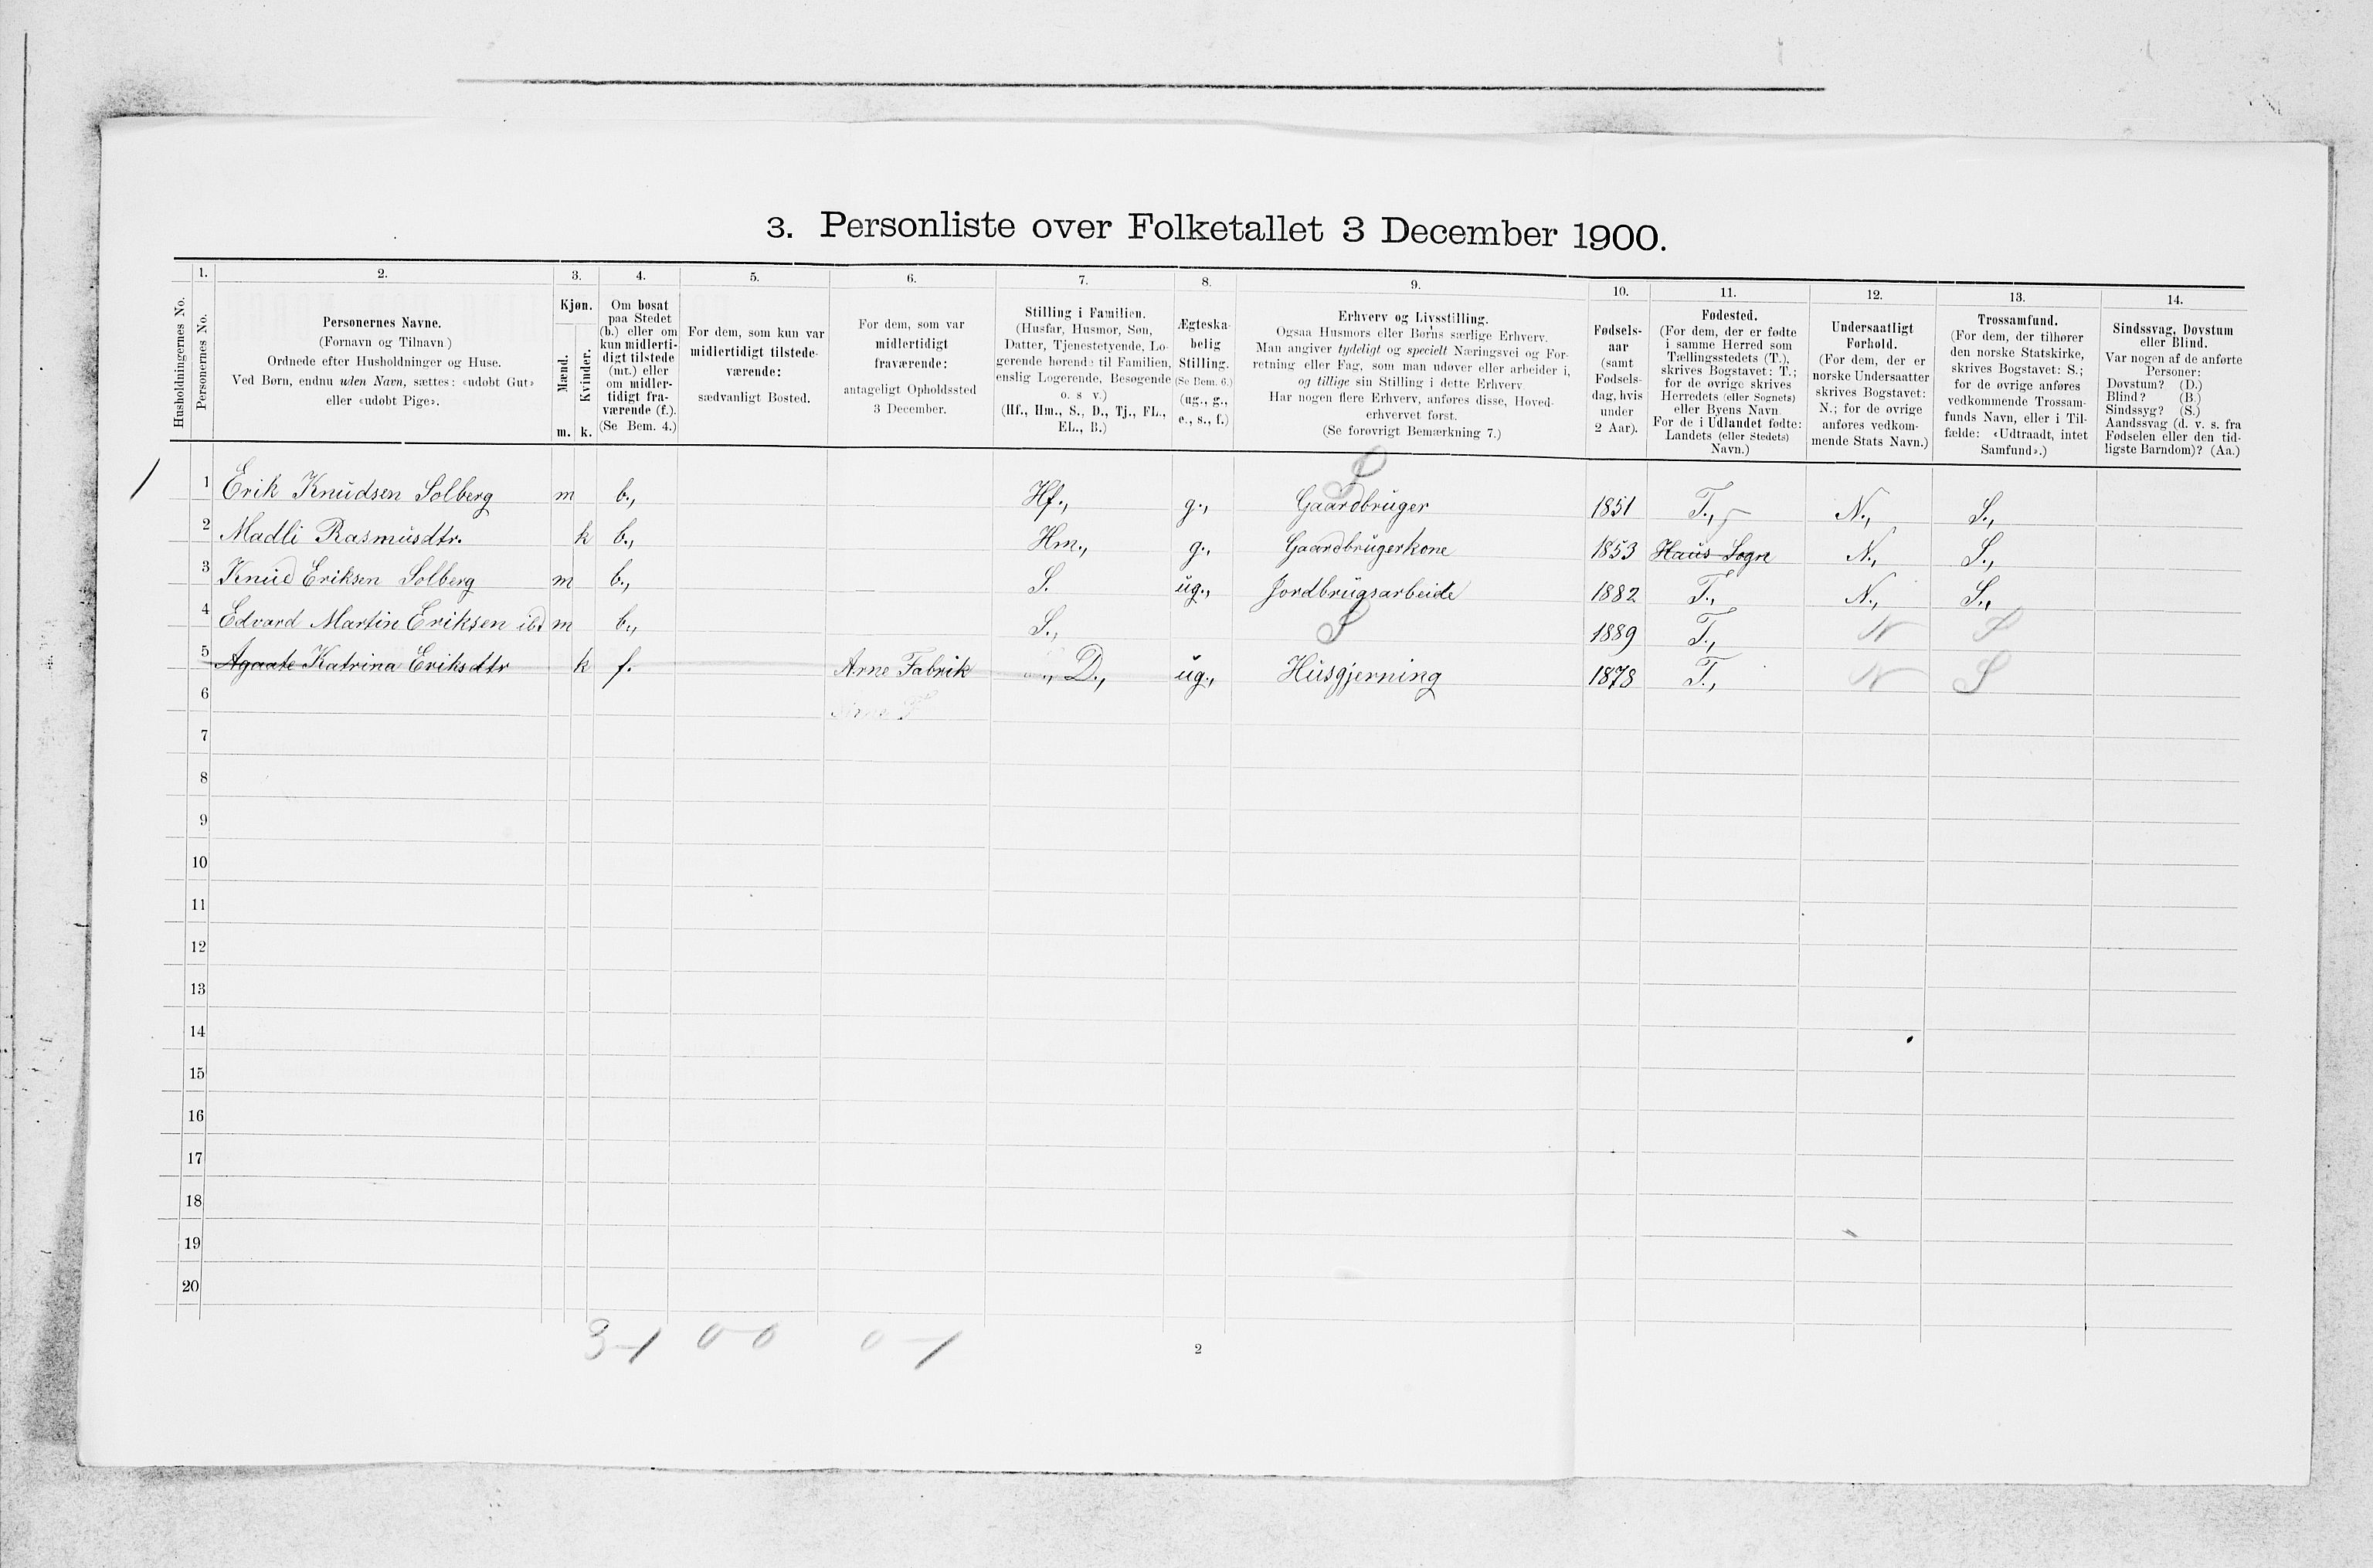 3. Personliste over Folketallet 3 December 1900.
1. 2. 3. 4. 5. 6. 7. 8. 9. 10. 11. 12. 13. 14.
Husholdningernes No.
Personernes No.
Personernes Navne.
(Fornavn og Tilnavn)
Ordnede efter Husholdninger og Huse.
Ved Børn, endnu uden Navn, sættes: «udøbt Gut»
eller «udøbt Pige».
Kjøn.
Mænd.
Kvinder.
m. k.
Om bosat
paa Stedet
(b.) eller om
kun midlerti-
digt tilstede
(mt.) eller
om midler-
tidigt fra-
værende (f.).
(Se Bem. 4.)
For dem, som kun var
midlertidigt tilstede-
værende:
sædvanligt Bosted.
For dem, som var
midlertidigt
fraværende:
antageligt Opholdssted
3 December.
Stilling i Familien.
(Husfar, Husmor, Søn,
Datter, Tjenestetyende, Lo-
gerende hørende til Familien,
enslig Logerende, Besøgende
o. s v.)
(Hf., Hm., S., D., Tj., FL.,
EL., B.)
Ægteska-
belig
Stilling.
(Se Bem. 6.)
(ug., g.,
e., s., f.)
Erhverv og Livsstilling.
Ogsaa Husmors eller Børns særlige Erhverv.
Man angiver tydeligt og specielt Næringsvei og For-
retning eller Fag, som man udøver eller arbeider i,
og tillige sin Stilling i dette Erhverv.
Har nogen flere Erhverv, anføres disse, Hoved-
erhvervet først.
(Se forøvrigt Bemærkning 7.)
Fødsels-
aar
(samt
Fødsels-
dag, hvis
under
2 Aar).
Fødested.
(For dem, der er fødte
i samme Herred som
Tællingsstedets (T.),
skrives Bogstavet: T.;
for de øvrige skrives
Herredets (eller Sognets)
eller Byens Navn.
For de i Udlandet fødte:
Landets (eller Stedets)
Navn.)
Undersaatligt
Forhold.
(For dem, der er
norske Undersaatter
skrives Bogstavet:
N.; for de øvrige
anføres vedkom-
mende Stats Navn.)
Trossamfund.
(For dem, der tilhører
den norske Statskirke,
skrives Bogstavet: S.;
for de øvrige anføres
vedkommende Trossam-
funds Navn, eller i Til-
fælde: «Udtraadt, intet
Samfund».)
Sindssvag, Døvstum
eller Blind.
Var nogen af de anførte
Personer:
Døvstum? (D.)
Blind? (B.)
Sindssyg? (S.)
Aandssvag (d. v. s. fra
Fødselen eller den tid-
ligste Barndom)? (Aa.)
S
1 1 Erik Knudsen Solberg m b., Hf., g., Gaardbruger 1851 T., N., S.,
2 Madli Rasmusdtr. k b., Hm., g., Gaardbrugerkone 1853 Haus Sogn N., S.,
3 Knud Eriksen Solberg m b., S. ug., Jordbrugsarbeide 1882 T., N., S.,
4 Edvard Martin Eriksen ibd m b., S., S 1889 T., N S
5 Agaate Katrina Eriksdtr k f. Arne Fabrik D., ug., Husgjerning 1878 T., N S
6
7
8
9
10
11
12
13
14
15
16
17
18
19
20
3-1 0-0 0-1
2